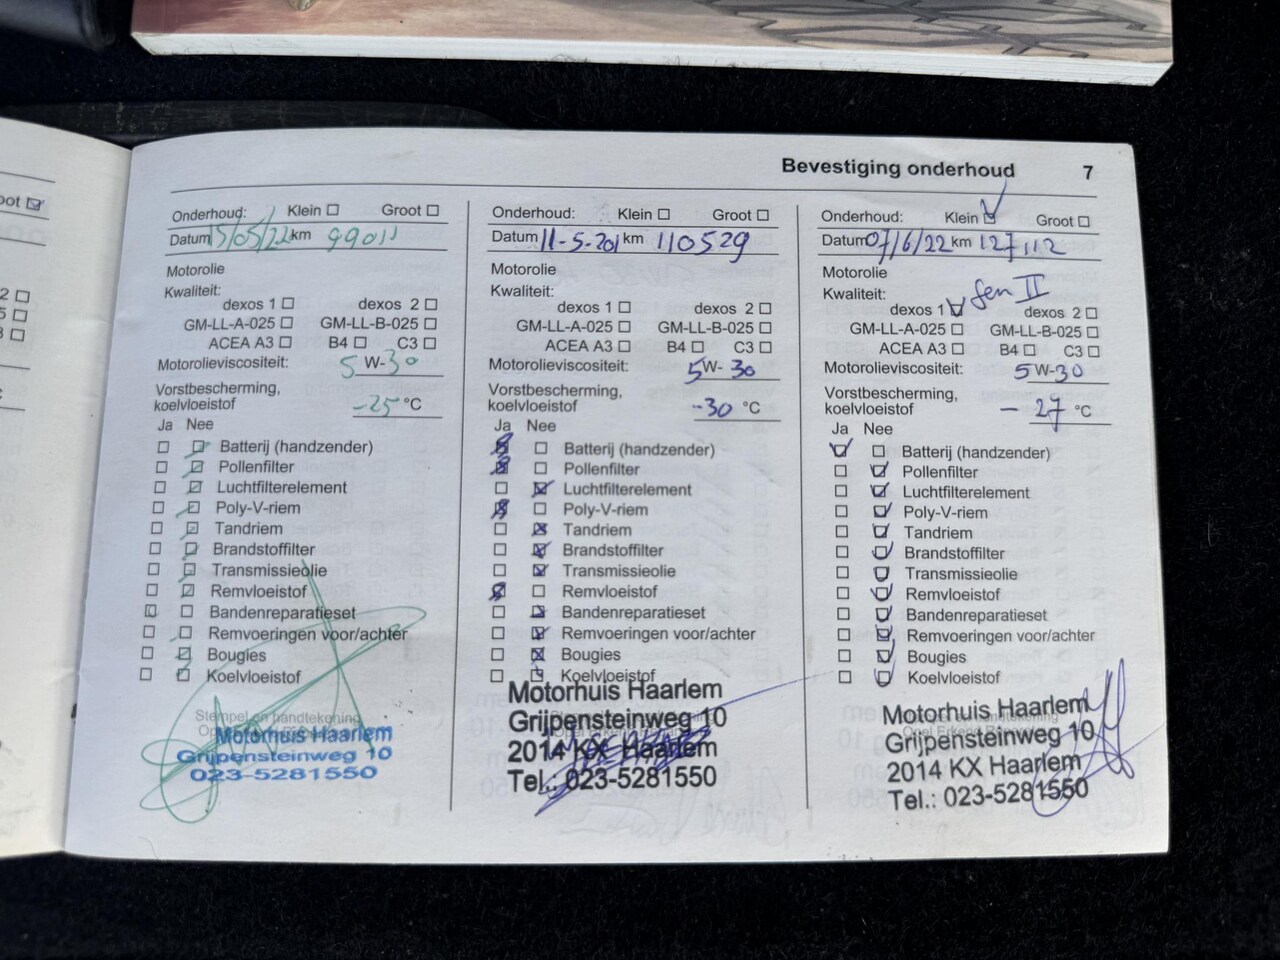 Bevestiging onderhoud 7
oot
2
5
3
Onderhoud: Klein Groot
Datum 15/05/22 km 99011
Motorolie
Kwaliteit:
dexos 1 dexos 2
GM-LL-A-025 GM-LL-B-025
ACEA A3 B4 C3
Motorolieviscositeit: 5 W-30
Vorstbescherming,
koelvloeistof -25 °C
Ja Nee
Batterij (handzender)
Pollenfilter
Luchtfilterelement
Poly-V-riem
Tandriem
Brandstoffilter
Transmissieolie
Remvloeistof
Bandenreparatieset
Remvoeringen voor/achter
Bougies
Koelvloeistof
Stempel en handtekening
Motorhuis Haarlem
Grijpensteinweg 10
023-5281550
Onderhoud: Klein Groot
Datum 11-5-201 km 110529
Motorolie
Kwaliteit:
dexos 1 dexos 2
GM-LL-A-025 GM-LL-B-025
ACEA A3 B4 C3
Motorolieviscositeit: 5 W- 30
Vorstbescherming,
koelvloeistof -30 °C
Ja Nee
Batterij (handzender)
Pollenfilter
Luchtfilterelement
Poly-V-riem
Tandriem
Brandstoffilter
Transmissieolie
Remvloeistof
Bandenreparatieset
Remvoeringen voor/achter
Bougies
Koelvloeistof
Motorhuis Haarlem
Grijpensteinweg 10
2014 KX Haarlem
Tel.: 023-5281550
Onderhoud: Klein Groot
Datum 07/6/22 km 127112
Motorolie
Kwaliteit: Gen II
dexos 1 dexos 2
GM-LL-A-025 GM-LL-B-025
ACEA A3 B4 C3
Motorolieviscositeit: 5 W-30
Vorstbescherming,
koelvloeistof - 27 °C
Ja Nee
Batterij (handzender)
Pollenfilter
Luchtfilterelement
Poly-V-riem
Tandriem
Brandstoffilter
Transmissieolie
Remvloeistof
Bandenreparatieset
Remvoeringen voor/achter
Bougies
Koelvloeistof
Motorhuis Haarlem
Grijpensteinweg 10
2014 KX Haarlem
Tel.: 023-5281550